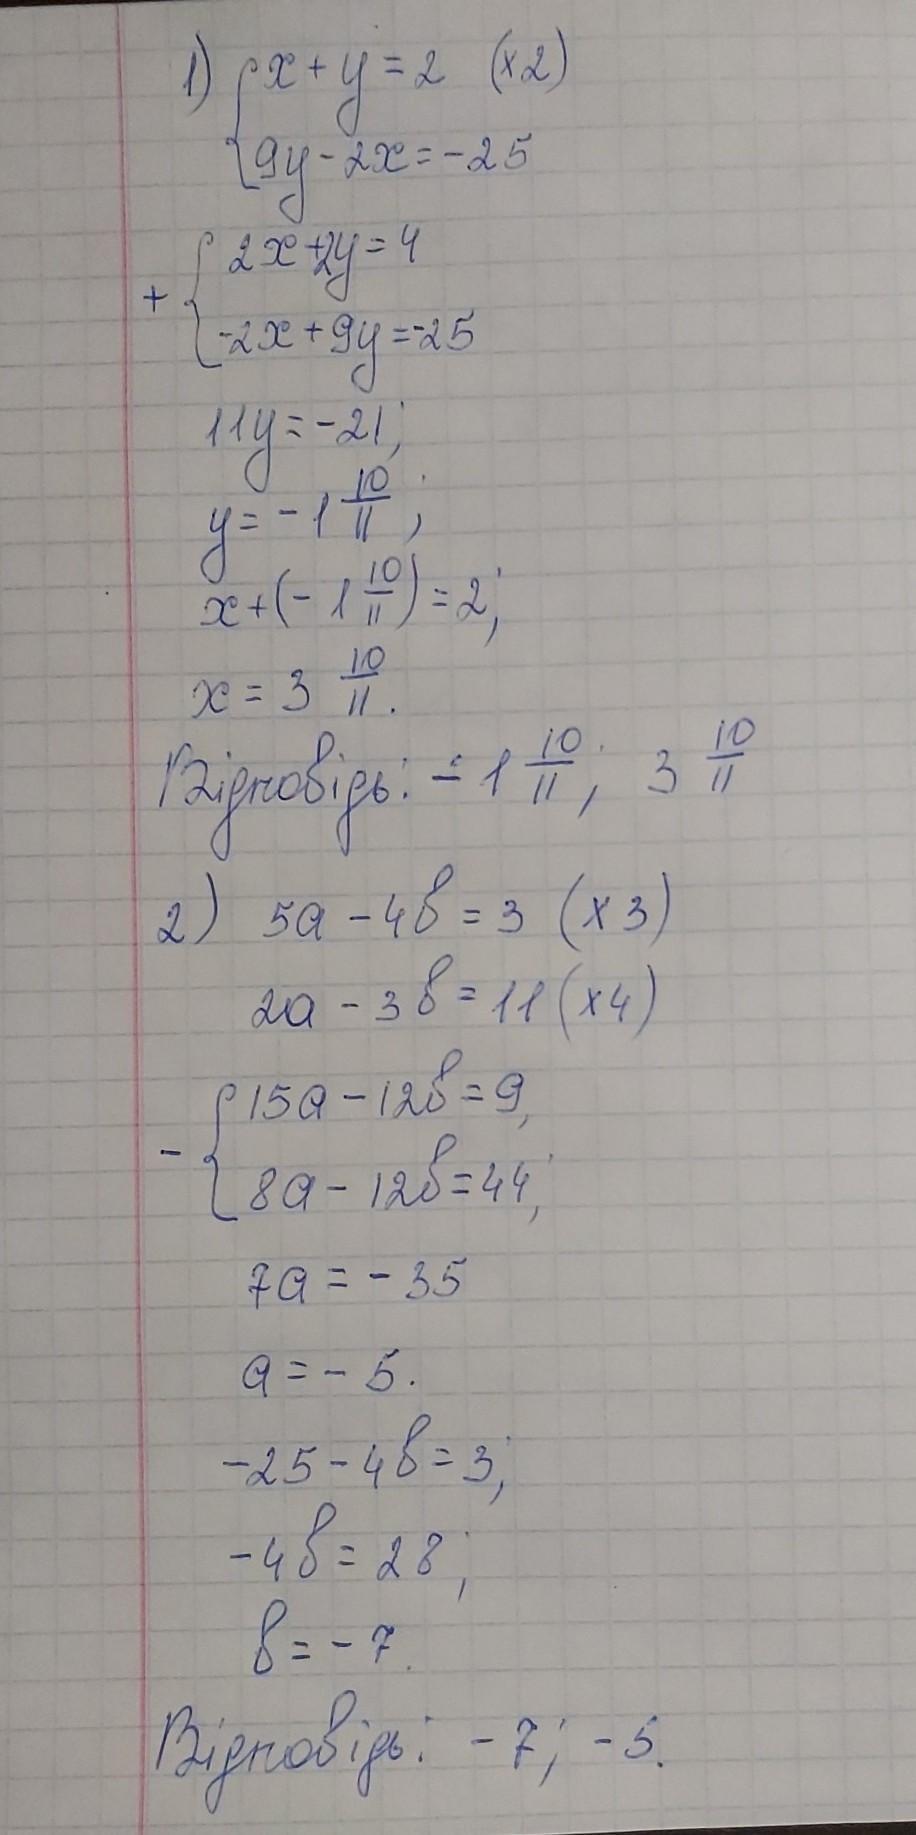 1) { x + y = 2 (×2)
9y - 2x = -25
+ { 2x + 2y = 4
-2x + 9y = -25
11y = -21;
y = -1 10/11;
x + (-1 10/11) = 2;
x = 3 10/11.
Відповідь: -1 10/11; 3 10/11
2) 5a - 4b = 3 (×3)
2a - 3b = 11 (×4)
- { 15a - 12b = 9,
8a - 12b = 44;
7a = -35
a = -5.
-25 - 4b = 3;
-4b = 28;
b = -7.
Відповідь: -7; -5.